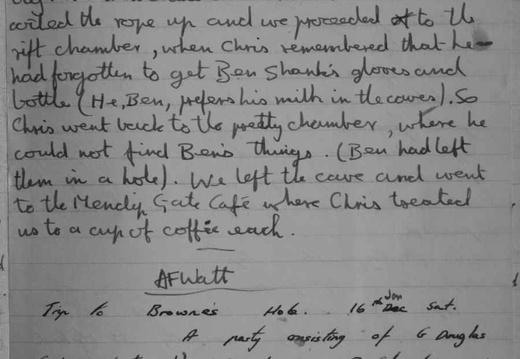 coiled the rope up and we proceeded to the
rift chamber, when Chris remembered that he
had forgotten to get Ben Shank's gloves and
bottle (He, Ben, prefers his milk in the caves). So
Chris went back to the pretty chamber, where he
could not find Ben's things. (Ben had left
them in a hole). We left the cave and went
to the Mendip Gate Café where Chris treated
us to a cup of coffee each.
AFWatt
Trip to Browne's Hole. 16th Jan Sat.
A party onsisting of G Douglas